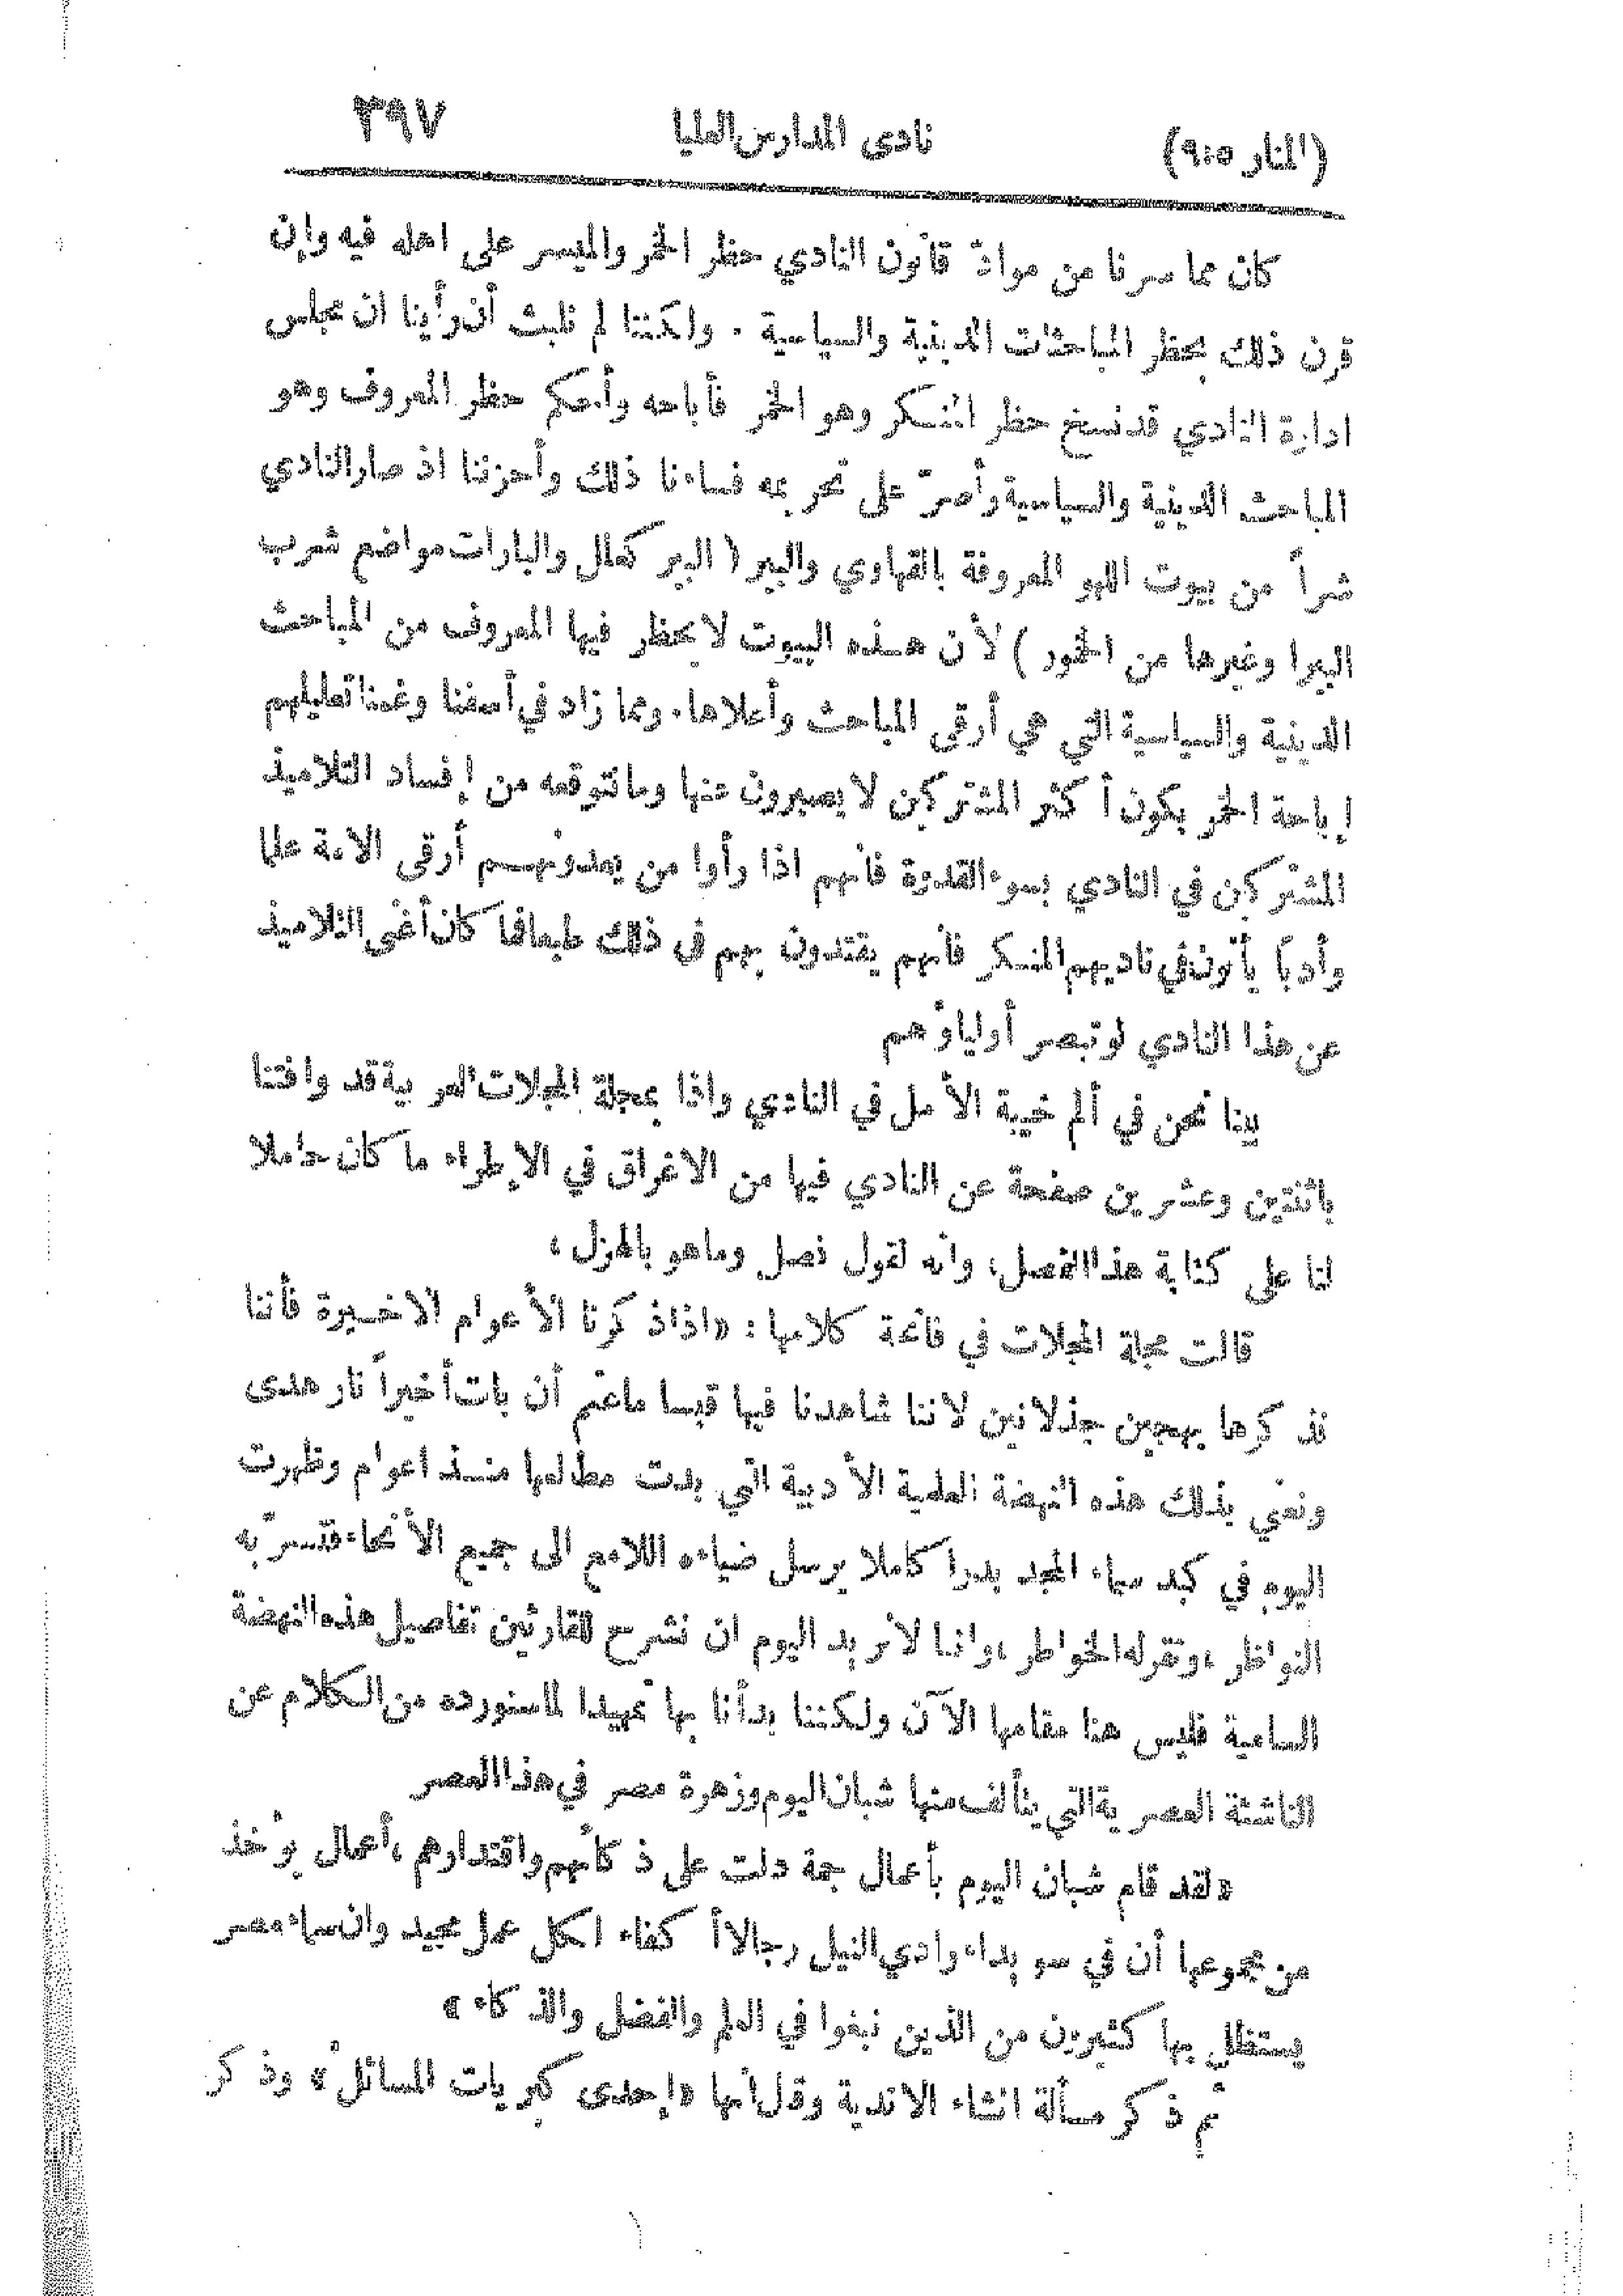 (المنار ٩:٥) نادى المدارس العليا ٣٩٧
كان مما سرنا من موادّ قانون النادي حظر الخمر والميسر على اهله فيه وإن
قرن ذلك بحظر المباحثات الدينية والسياسية . ولكننا لم نلبث أن رأينا ان مجلس
ادارة النادي قد نسخ حظر المنكر وهو الخمر فأباحه وأحكم حظر المعروف وهو
المباحث الدينية والسياسية وأصرّ على تحريمه فساءنا ذلك وأحزننا اذ صار النادي
شراً من بيوت اللهو المعروفة بالقهاوي والبير ( البير كمال والبارات مواضع شرب
البيرا وغيرها من الخمور ) لأن هذه البيوت لا يحظر فيها المعروف من المباحث
الدينية والسياسية التي هي أرقى المباحث وأعلاها . ومما زاد في أسفنا وغمنا تعليلهم
إباحة الخمر بكون أكثر المشتركين لا يصبرون عنها وما نتوقعه من إفساد التلاميذ
المشتركين في النادي بسوء القدوة فأنهم اذا رأوا من يعدونهم أرقى الامة علما
وأدباً يأتون في ناديهم المنكر فأنهم يقتدون بهم في ذلك طبعا فما كان أغنى التلاميذ
عن هذا النادي لو تبصر أولياؤهم
بينا نحن في ألم خيبة الأمل في النادي واذا بمجلة المجلات العربية قد وافتنا
باثنتين وعشرين صفحة عن النادي فيها من الاغراق في الإطراء ما كان حاملا
لنا على كتابة هذا الفصل، وانه لقول فصل وما هو بالهزل ،
قالت مجلة المجلات في فاتحة كلامها : « اذا ذكرنا الأعوام الاخيرة فأننا
نذكرها بهجين جذلانين لاننا شاهدنا فيها قبسا ماعتم أن بات أخيراً نار هدى
ونعني بذلك هذه النهضة العلمية الأدبية التي بدت مطالعها منذ اعوام وظهرت
اليوم في كبد سماء المجد بدراً كاملا يرسل ضياءه اللامع الى جميع الأنحاء فتسرّ به
النواظر ، وتقر له الخواطر ، واننا لا نريد اليوم ان نشرح للقارئين تفاصيل هذه النهضة
السامية فليس هنا مقامها الآن ولكننا بدأنا بها تمهيدا لما سنورده من الكلام عن
الناشئة المصرية التي يتألف منها شبان اليوم وزهرة مصر في هذا العصر
« لقد قام شبان اليوم بأعمال جمة دلت على ذكائهم واقتدارهم ، أعمال يؤخذ
من مجموعها أن في سويداء وادي النيل رجالا أكفاء لكل عمل مجيد وان سماء مصر
يستظل بها كثيرون من الذين نبغوا في العلم والفضل والذكاء »
ثم ذكر مسألة انشاء الاندية وقال أنها « إحدى كبريات المسائل » وذكر